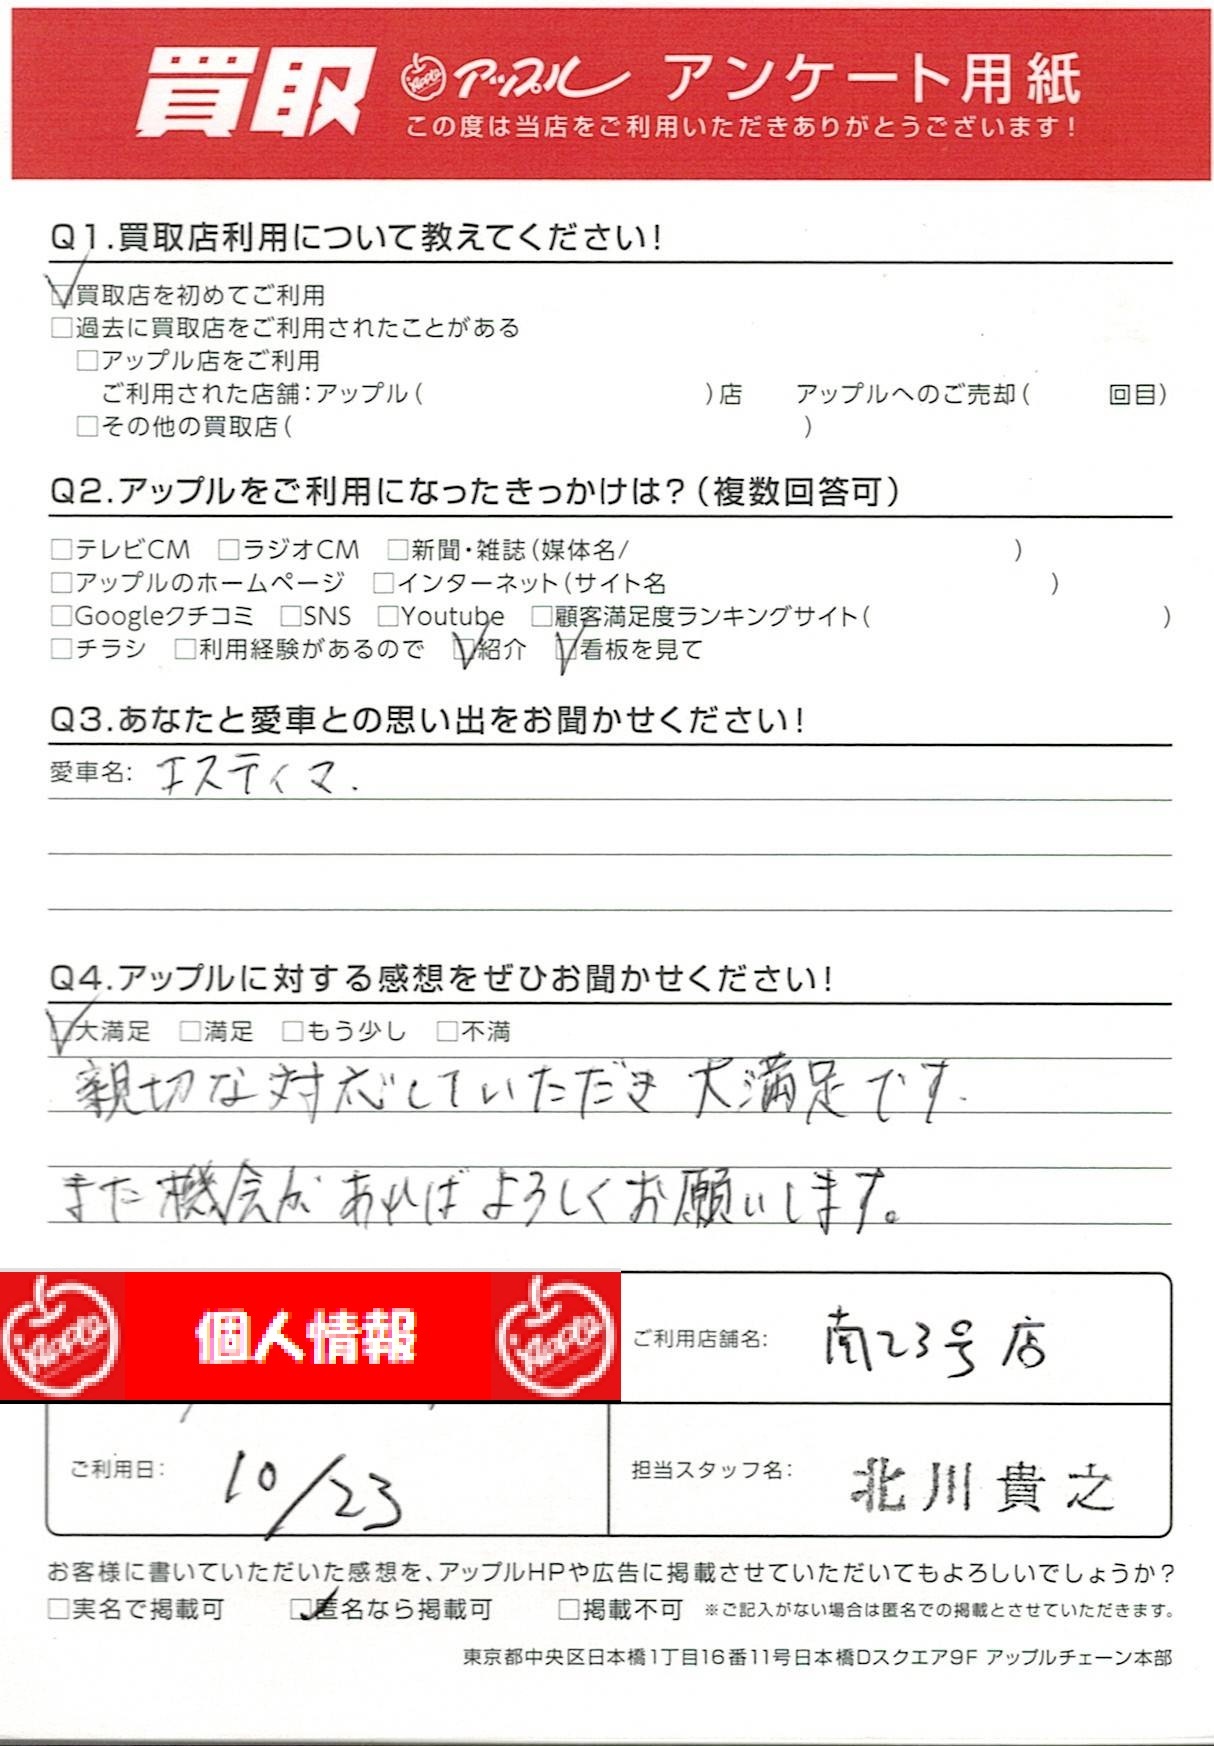 買取 Apple アップル アンケート用紙
この度は当店をご利用いただきありがとうございます!
Q1.買取店利用について教えてください!
☑買取店を初めてご利用
□過去に買取店をご利用されたことがある
□アップル店をご利用
ご利用された店舗:アップル( )店 アップルへのご売却( 回目)
□その他の買取店( )
Q2.アップルをご利用になったきっかけは?(複数回答可)
□テレビCM □ラジオCM □新聞・雑誌(媒体名/ )
□アップルのホームページ □インターネット(サイト名 )
□Googleクチコミ □SNS □Youtube □顧客満足度ランキングサイト( )
□チラシ □利用経験があるので ☑紹介 ☑看板を見て
Q3.あなたと愛車との思い出をお聞かせください!
愛車名: エスティマ.
Q4.アップルに対する感想をぜひお聞かせください!
☑大満足 □満足 □もう少し □不満
親切な対応していただき大満足です.
また機会があればよろしくお願いします。
Apple 個人情報 Apple
ご利用店舗名: 南23号店
ご利用日: 10/23
担当スタッフ名: 北川貴之
お客様に書いていただいた感想を、アップルHPや広告に掲載させていただいてもよろしいでしょうか?
□実名で掲載可 ☑匿名なら掲載可 □掲載不可 ※ご記入がない場合は匿名での掲載とさせていただきます。
東京都中央区日本橋1丁目16番11号日本橋Dスクエア9F アップルチェーン本部